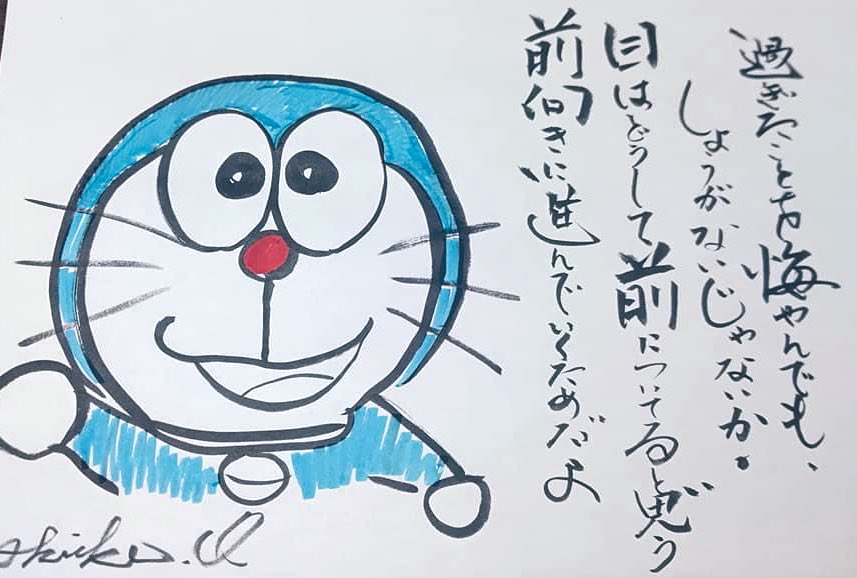 過ぎたことを悔やんでも、
しょうがないじゃないか。
目はどうして前についてると思う
前向きに進んでいくためだよ